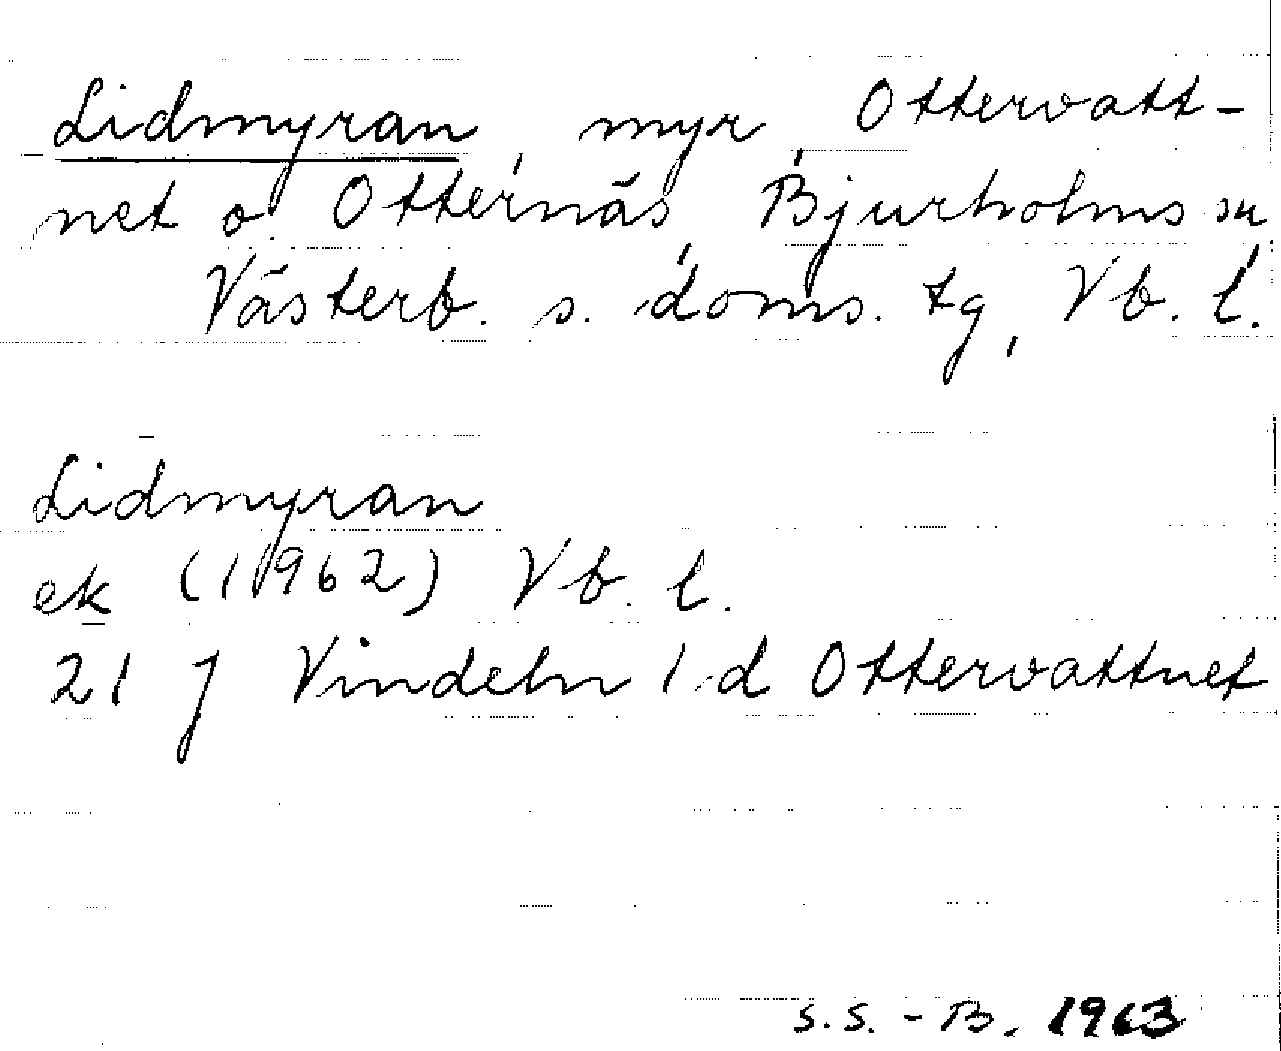 Lidmyran, myr, Ottervatt-
net o. Otternäs, Bjurholms sn,
Västerb. s. doms. tg, Vb. l.
Lidmyran
ek (1962) Vb. l.
21 J Vindeln 1 d Ottervattnet
S.S.-B. 1963